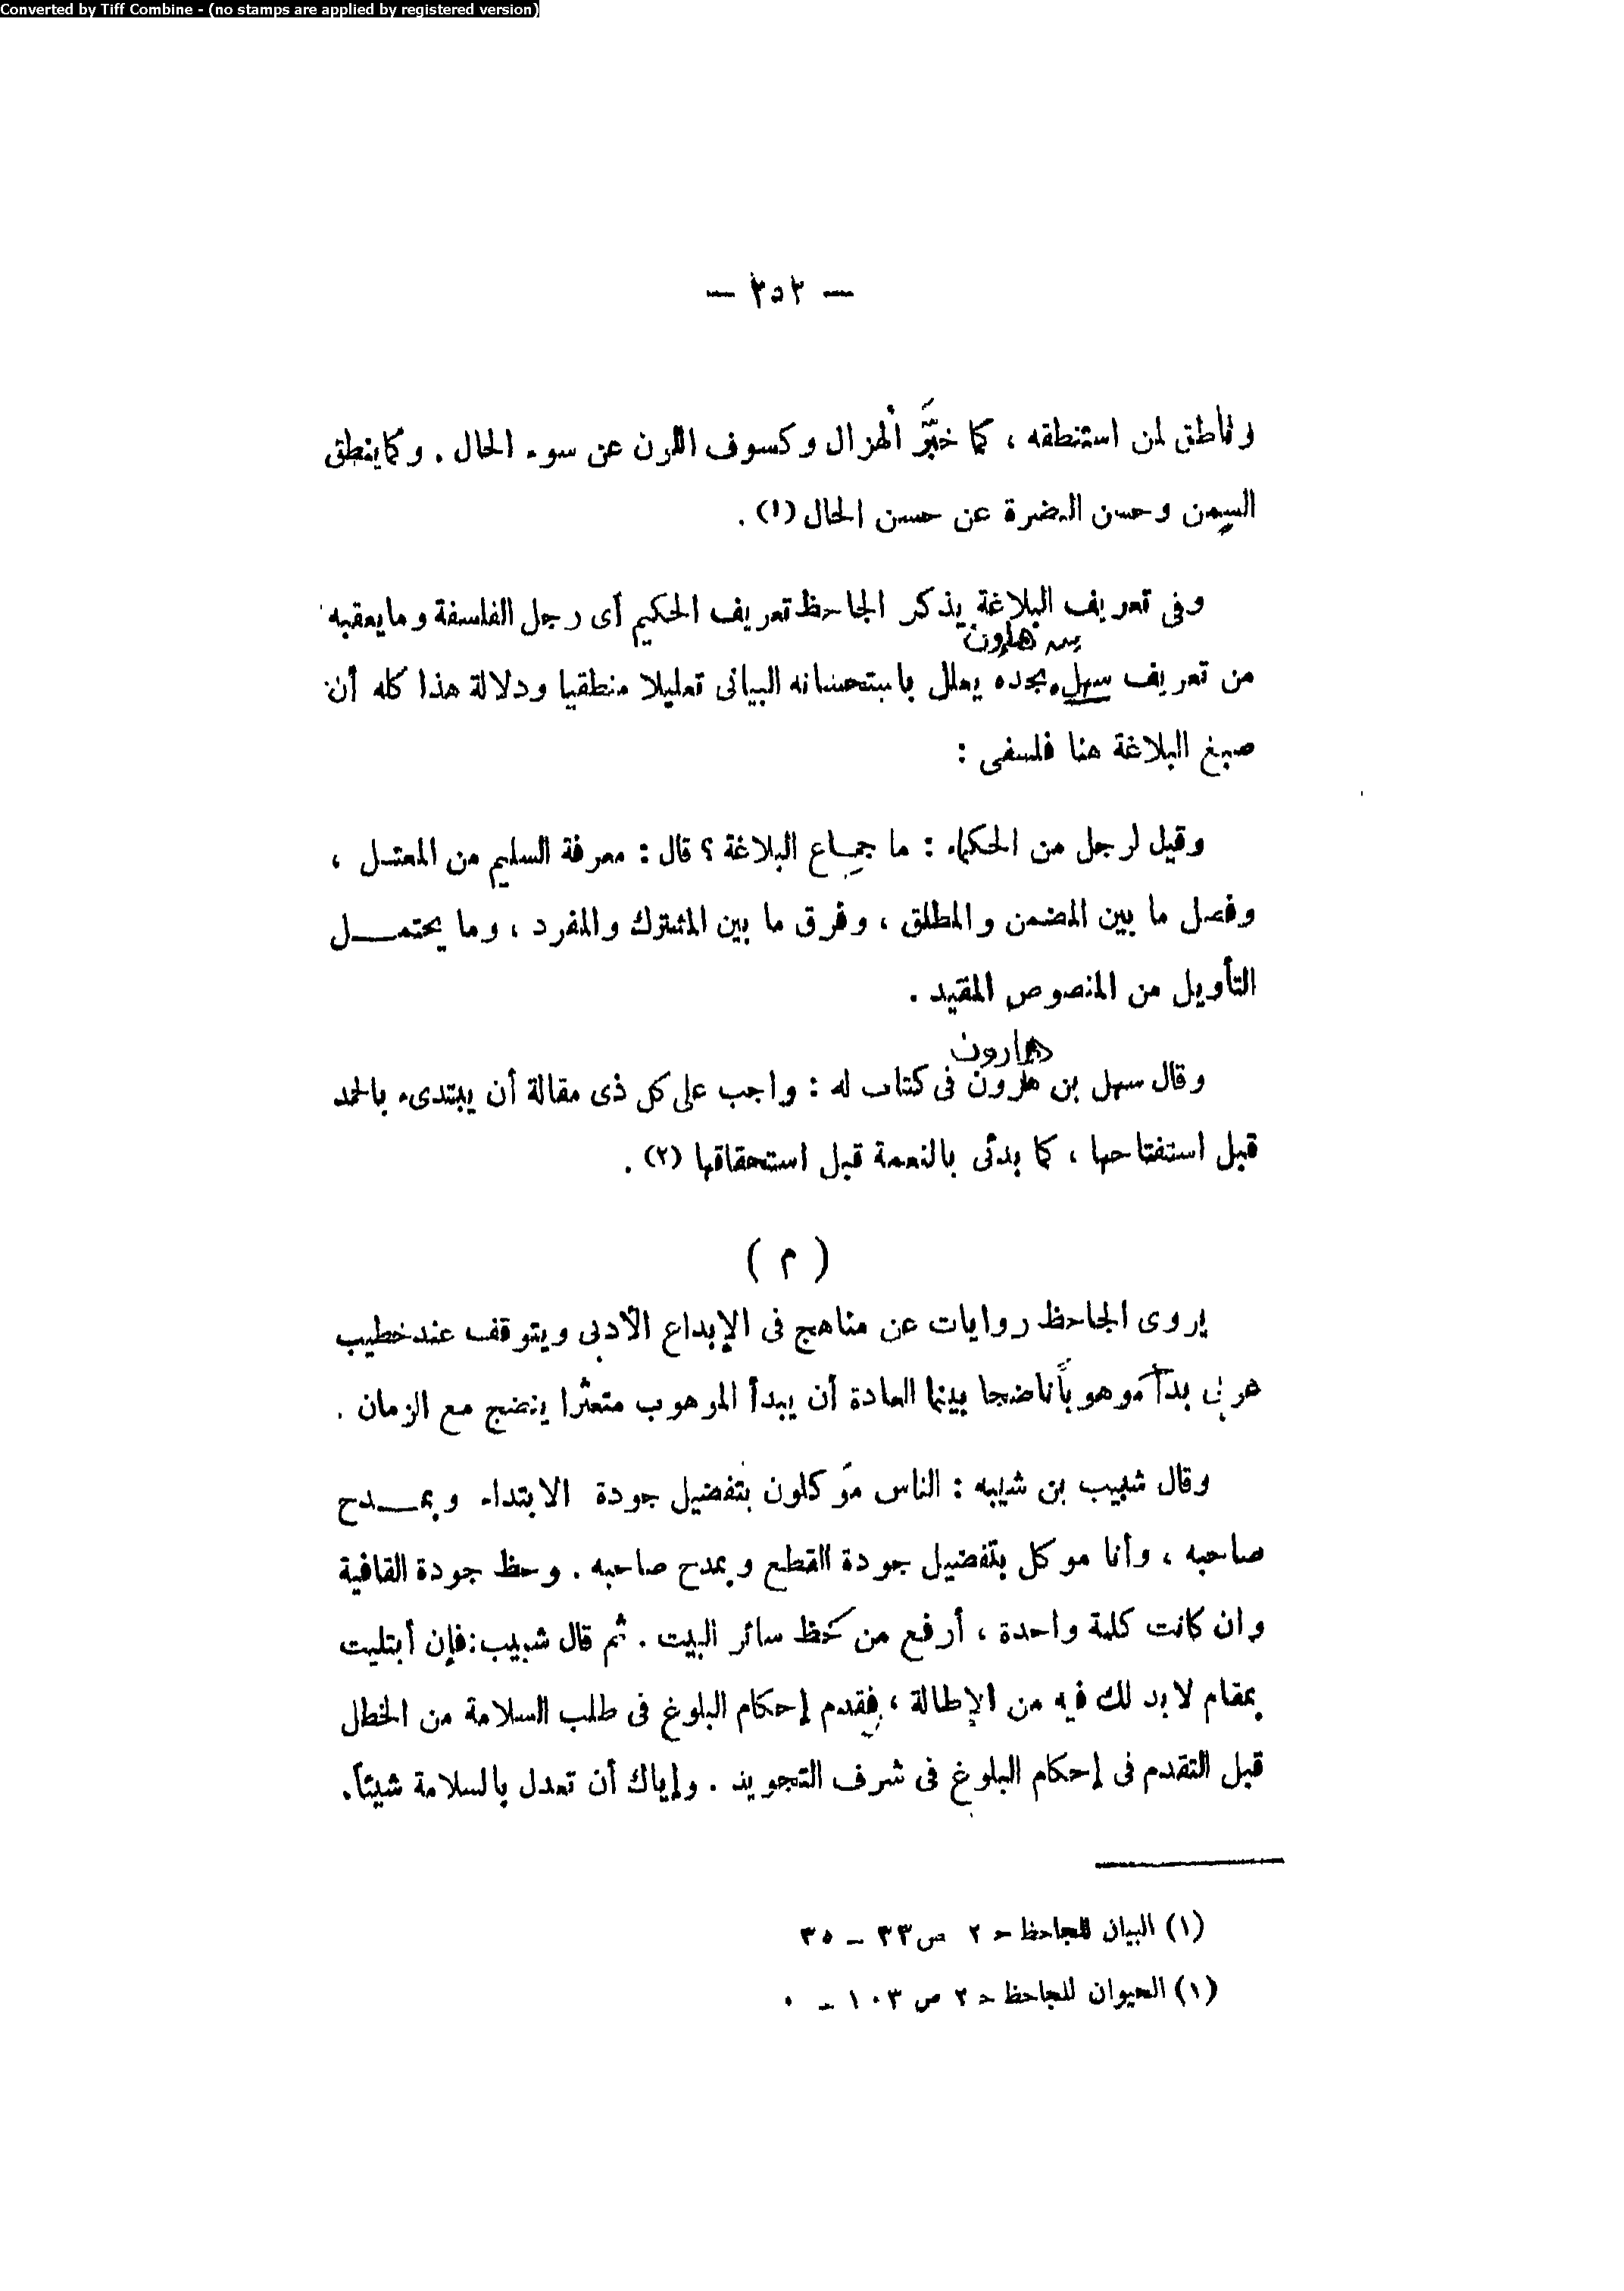 Converted by Tiff Combine - (no stamps are applied by registered version)
— ٢٥٢ —
وناطق لمن استنطقه ، كما خبَّر الهزال وكسوف اللون عن سوء الحال . وكما ينطق
السِمن وحسن النضرة عن حسن الحال (١) .
وفى تعريف البلاغة يذكر الجاحظ تعريف الحكيم أى رجل الفلسفة وما يعقبه
بن هارون
من تعريف سهل نجده يعلل باستحسانه البيانى تعليلا منطقيا ودلالة هذا كله أن
صبغ البلاغة هنا فلسفى :
وقيل لرجل من الحكماء : ما جِماع البلاغة ؟ قال : معرفة السليم من المعتل ،
وفصل ما بين المضمن والمطلق ، وفرق ما بين المشترك والمفرد ، وما يحتمل
التأويل من المنصوص المقيد .
هارون
وقال سهل بن هارون فى كتاب له : واجب على كل ذى مقالة أن يبتدىء بالحمد
قبل استفتاحها ، كما بدئ بالنعمة قبل استحقاقها (٢) .
( م )
يروى الجاحظ روايات عن مناهج فى الإبداع الأدبى ويتوقف عند خطيب
عربى بدأ موهوباً ناضجا بينما العادة أن يبدأ الموهوب متعثرا ينضج مع الزمان .
وقال شبيب بن شيبه : الناس موكلون بتفضيل جودة الابتداء وبمدح
صاحبه ، وأنا موكل بتفضيل جودة القطع وبمدح صاحبه . وحظ جودة القافية
وان كانت كلمة واحدة ، أرفع من حظ سائر البيت . ثم قال شبيب : فإن أبتليت
بمقام لابد لك فيه من الإطالة ، فقدم إحكام البلوغ فى طلب السلامة من الخطل
قبل التقدم فى إحكام البلوغ فى شرف التجويد . وإياك أن تعدل بالسلامة شيئاً .
(١) البيان للجاحظ حـ ٢ ص ٣٣ – ٣٥
(١) الحيوان للجاحظ حـ ٢ ص ١٠٣ – ٠